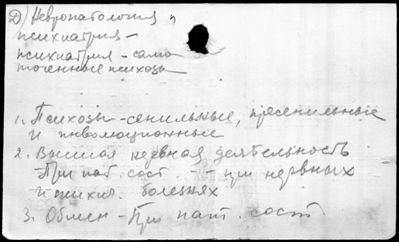 Д) Невропатология и
психиатрия -
психиатрия - сома
тогенные психозы
1. Психозы - сенильные, пресенильные
и инволюционные
2. Высшая нервная деятельность
При пат. сост. - - при нервных
и психич. болезнях
3. Обмен - При пат. сост.